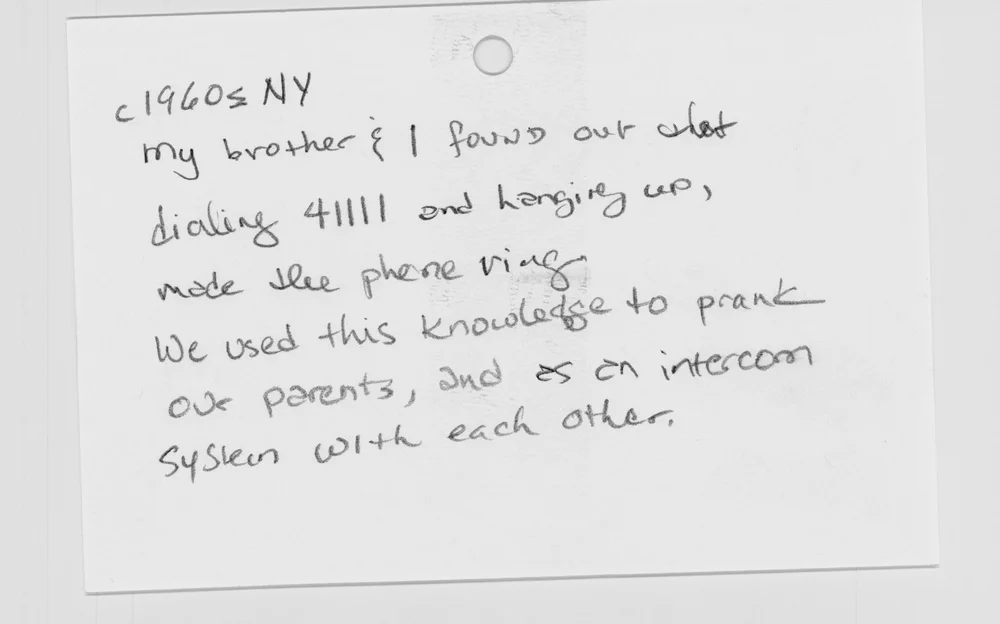 c 1960s NY
My brother & I found out that
dialing 41111 and hanging up,
made the phone ring.
We used this knowledge to prank
our parents, and as an intercom
system with each other.